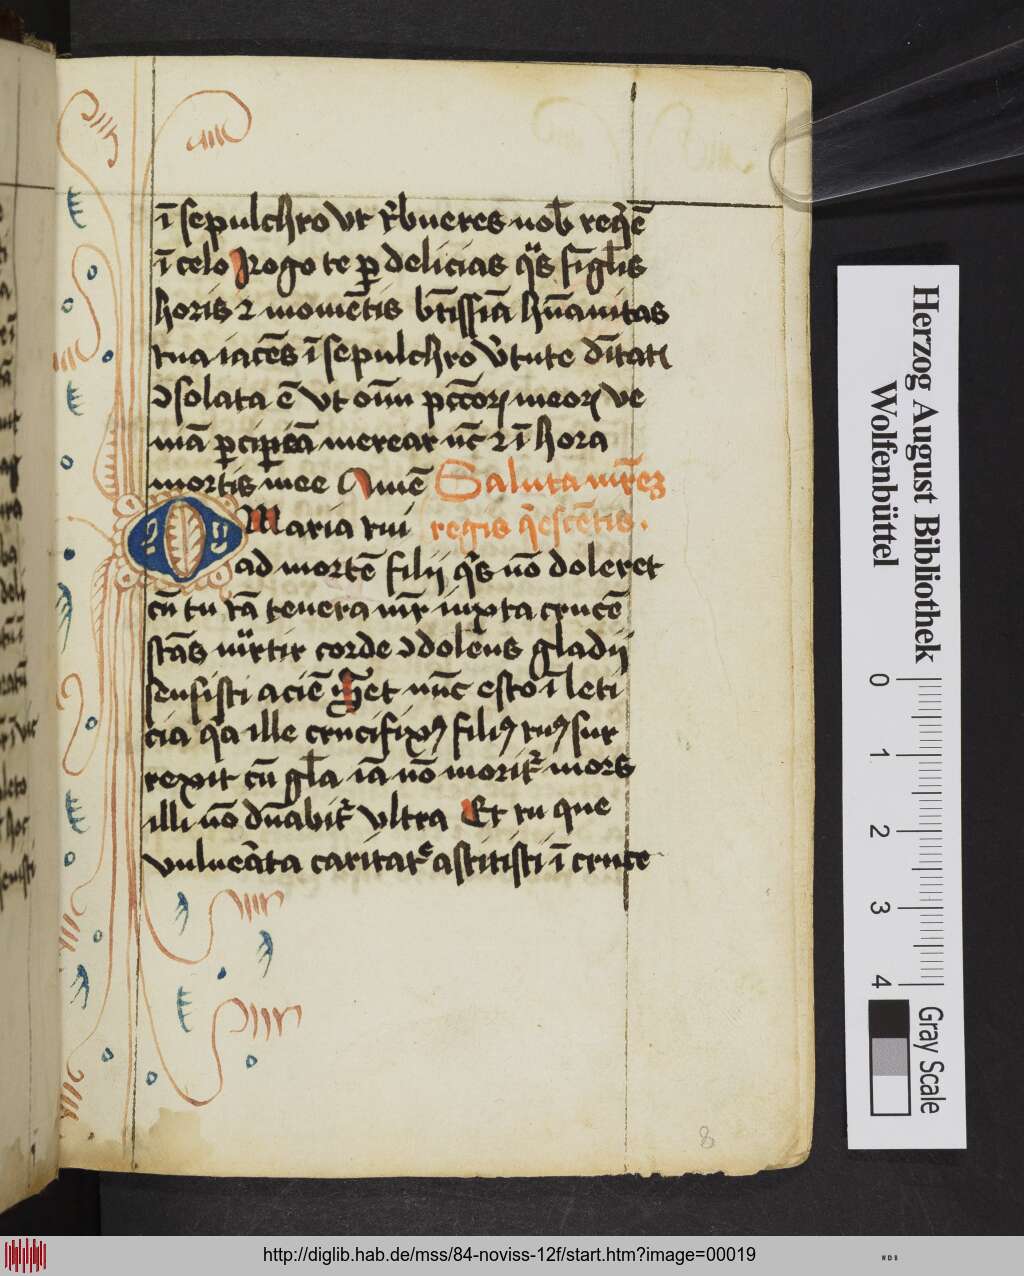 ī sepulchro vt t̓bueres nob̄ req̓ē
ī celo Rogo te ꝑ delicias qͣs sīgl̓is
horis ⁊ momētis bt̄issīa hūanitas
tua iacēs ī sepulchro v̓tute dītatꝭ
ↄsolata ē vt oīm pctōꝝ meoꝝ ve
niā ꝑcipiēdā merear nc̄ ⁊ ī hora
mortis mee Amē Saluta mr̄eʒ
O Maria tui regis q̓escētis .
ad mortē filij qͣs nō doleret
cū tu tā tenera mr̄ iuxta crucē
stās mͣtir corde ↄdolēns gladij
sensisti aciē Ꝫet nūc esto ī leti
cia qͣ ille crucifixꝰ filiꝰ tuꝰ sur
rexit cū gl̓a iā nō morit̓ mors
illi nō dn̄abit̓ vltra Et tu que
vulneᷓta caritate astitisti ī cruce
8
Herzog August Bibliothek
Wolfenbüttel
0 1 2 3 4
Gray Scale
http://diglib.hab.de/mss/84-noviss-12f/start.htm?image=00019